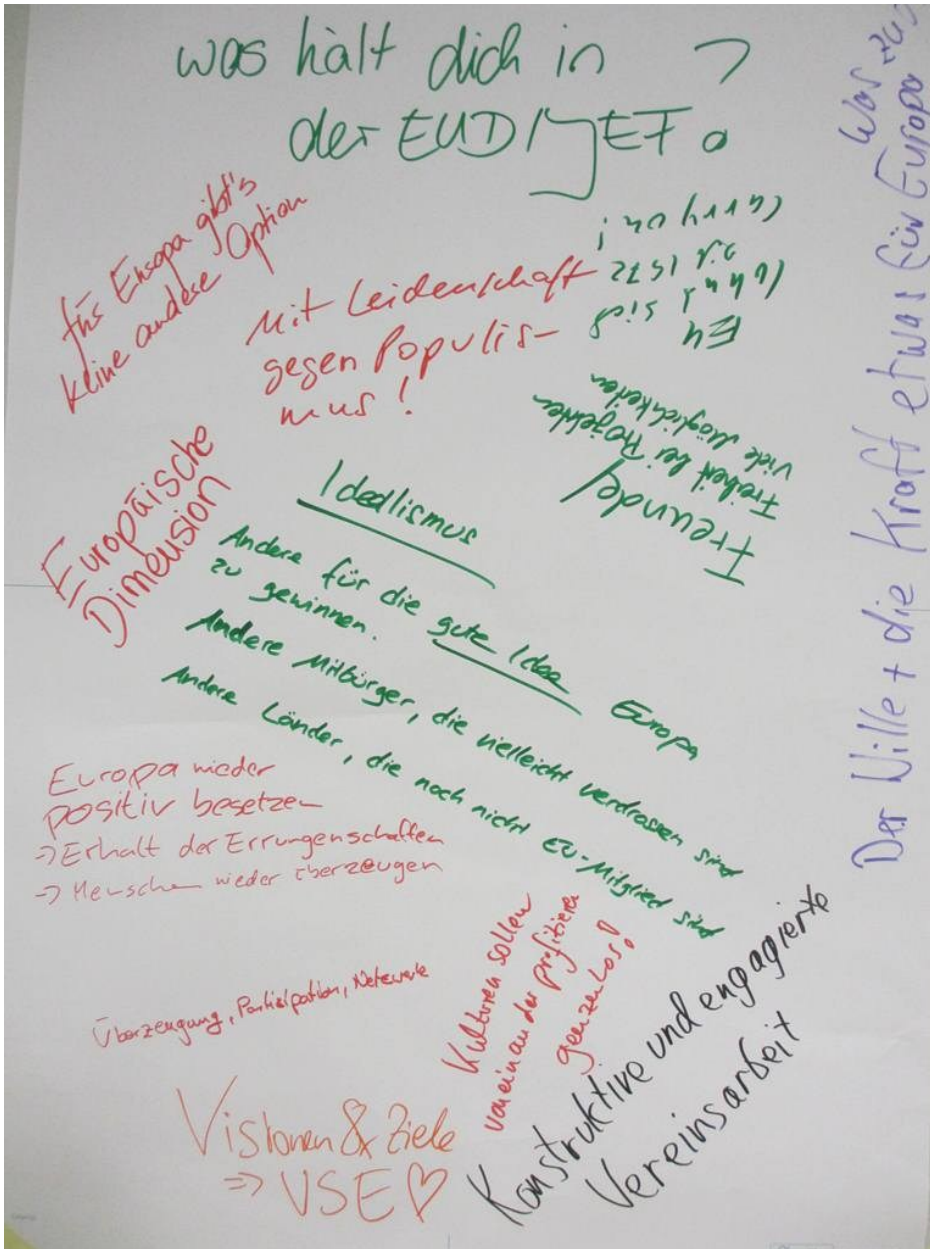 was hält dich in
der EUD/JEF?
fürs Europa gibt's
keine andere Option
Mit Leidenschaft
gegen Populis-
mus!
EU
Carry on!
Freunde
Freiheit bei Projekten
viele Möglichkeiten
Europäische
Dimension
Idealismus
Andere für die gute Idee Europa
zu gewinnen.
Andere Mitbürger, die vielleicht verdrossen sind
Andere Länder, die noch nicht EU-Mitglied sind
Europa wieder
positiv besetzen
-> Erhalt der Errungenschaften
-> Menschen wieder überzeugen
Überzeugung, Partizipation, Netzwerke
Kulturen sollen
voneinander profitieren
grenzenlos!
Visionen & Ziele
=> VSE ♡
Konstruktive und engagierte
Vereinsarbeit
Der Wille + die Kraft etwas für Europa